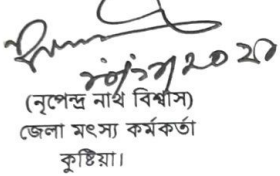 (নৃপেন্দ্র নাথ বিশ্বাস)
জেলা মৎস্য কর্মকর্তা
কুষ্টিয়া।